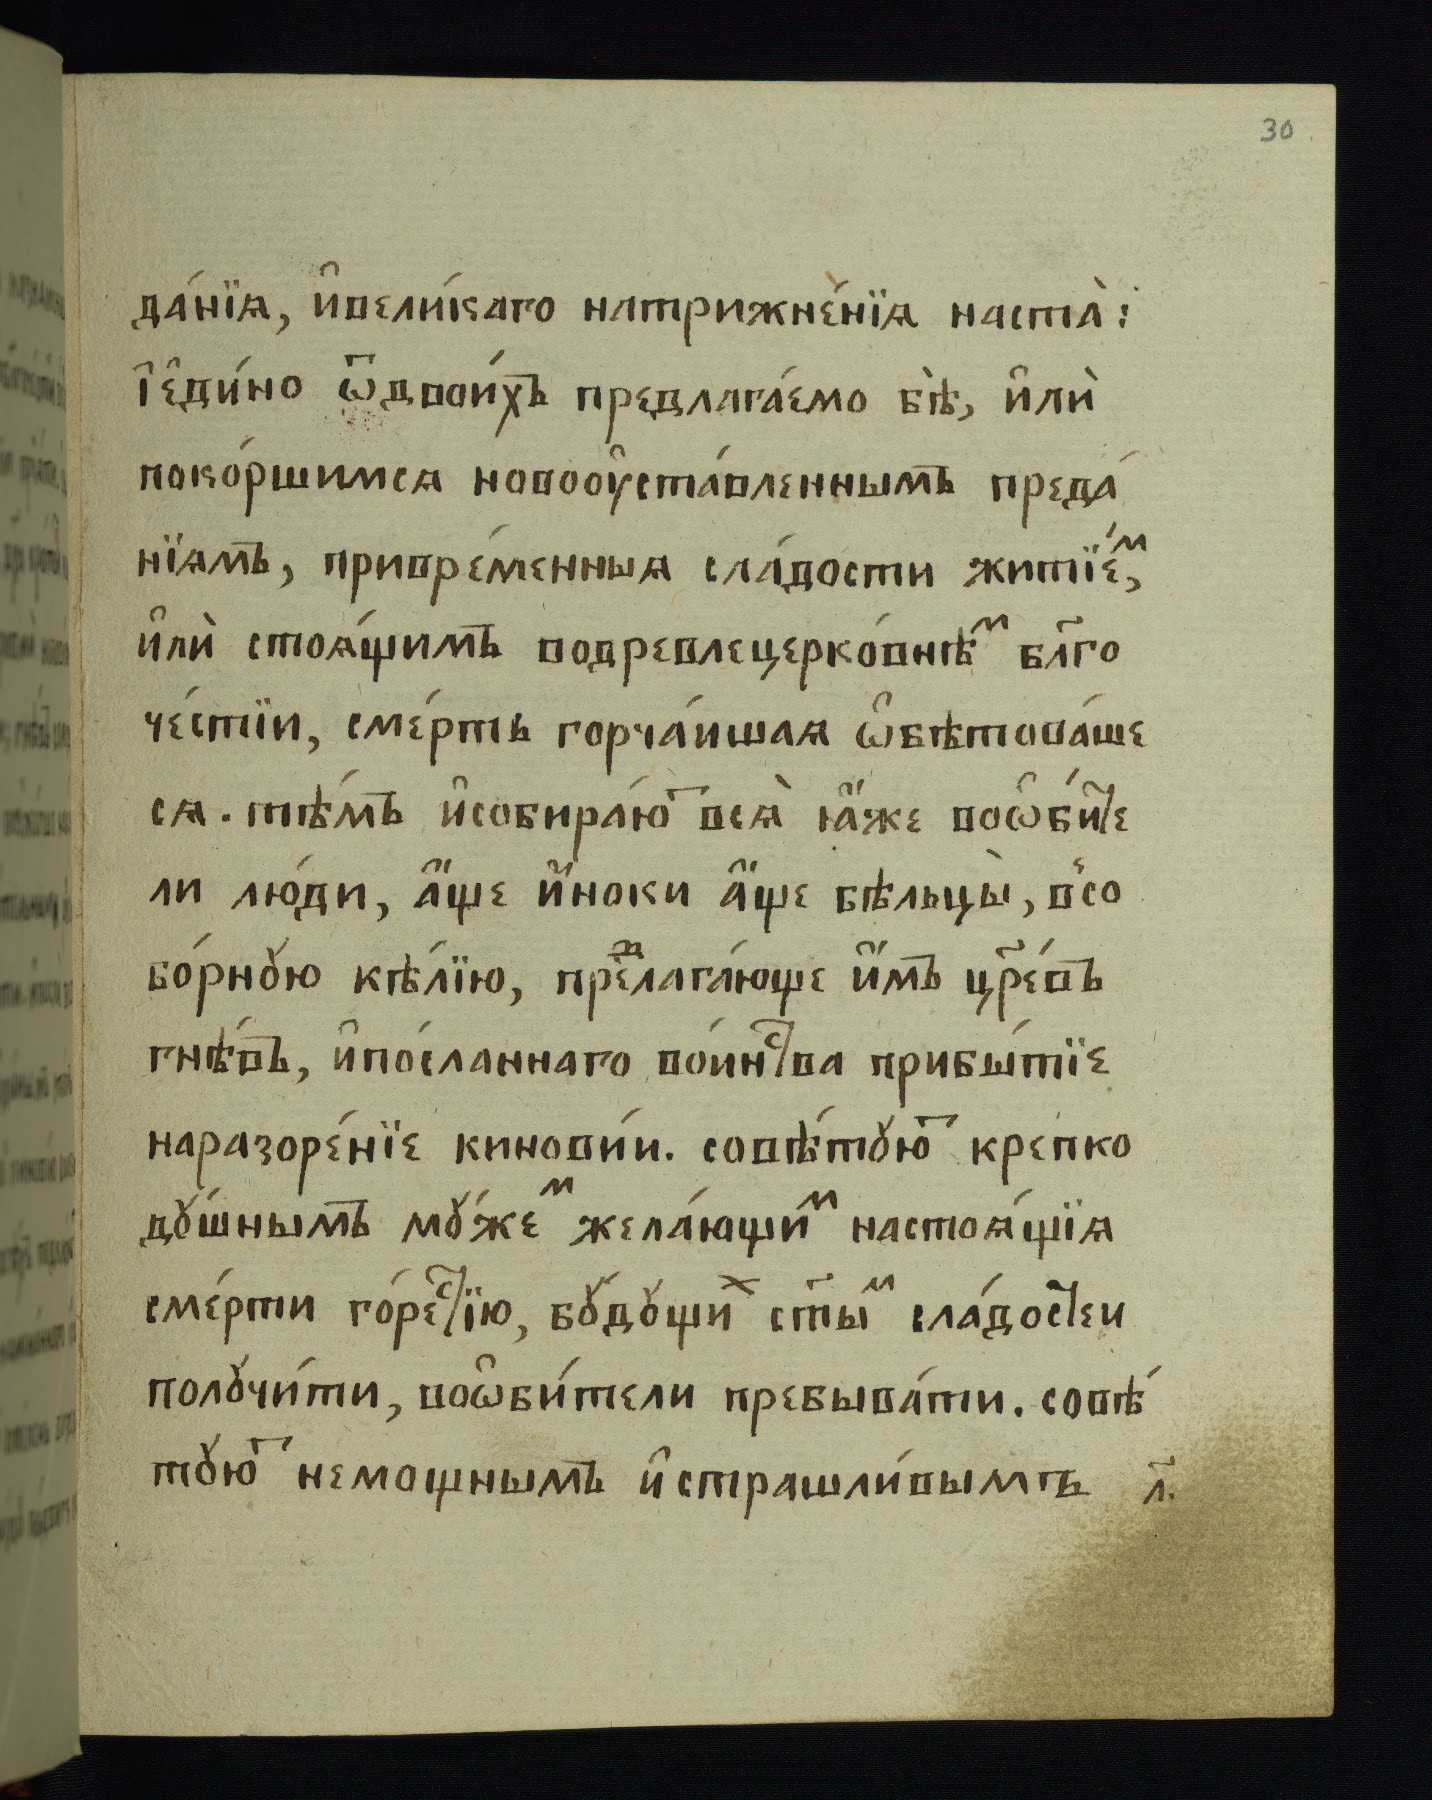 30
да́нїѧ, и҆вели́каго натрижне́нїѧ наста̀:
І҆е҆ди́но ѿдвои́хъ предлага́емо бѣ̀, и҆лѝ
поко́ршимсѧ новооу҆ста́вленнымъ преда́
нїѧмъ, привре́менныѧ сла́дости житїе́ⷨ,
и҆лѝ стоѧ́щимъ водревлецерко́внѣⷨ бл҃го
че́стїи, сме́рть горча́ишаѧ ѡ҆бѣтова́ше
сѧ. тѣ́мъ и҆собира́юⷮ всѧ̀ ꙗ҆́же воѡ҆би́те
ли лю́ди, а҆́ще и҆́ноки а҆́ще бѣльцы̀, в̾со
бо́рнꙋю кѣ́лїю, преⷣлага́юще и҆́мъ цр҃е́въ
гнѣ́въ, и҆по́сланнаго во́инⷭ҇тва прибы́тїе
наразоре́нїе кинові́и. совѣ́тꙋюⷮ крепко
дꙋ́шнымъ мꙋ́жеⷨ жела́ющиⷨ настоѧ́щїѧ
сме́рти го́реⷭ҇тїю, бꙋ́дꙋщиⷯ ст҃ыⷨ сла́доⷭ҇теи
полꙋчи́ти, воѡ҆би́тели пребыва́ти. совѣ́
тꙋюⷮ немощнымъ и҆страшли́вымъ л҃.